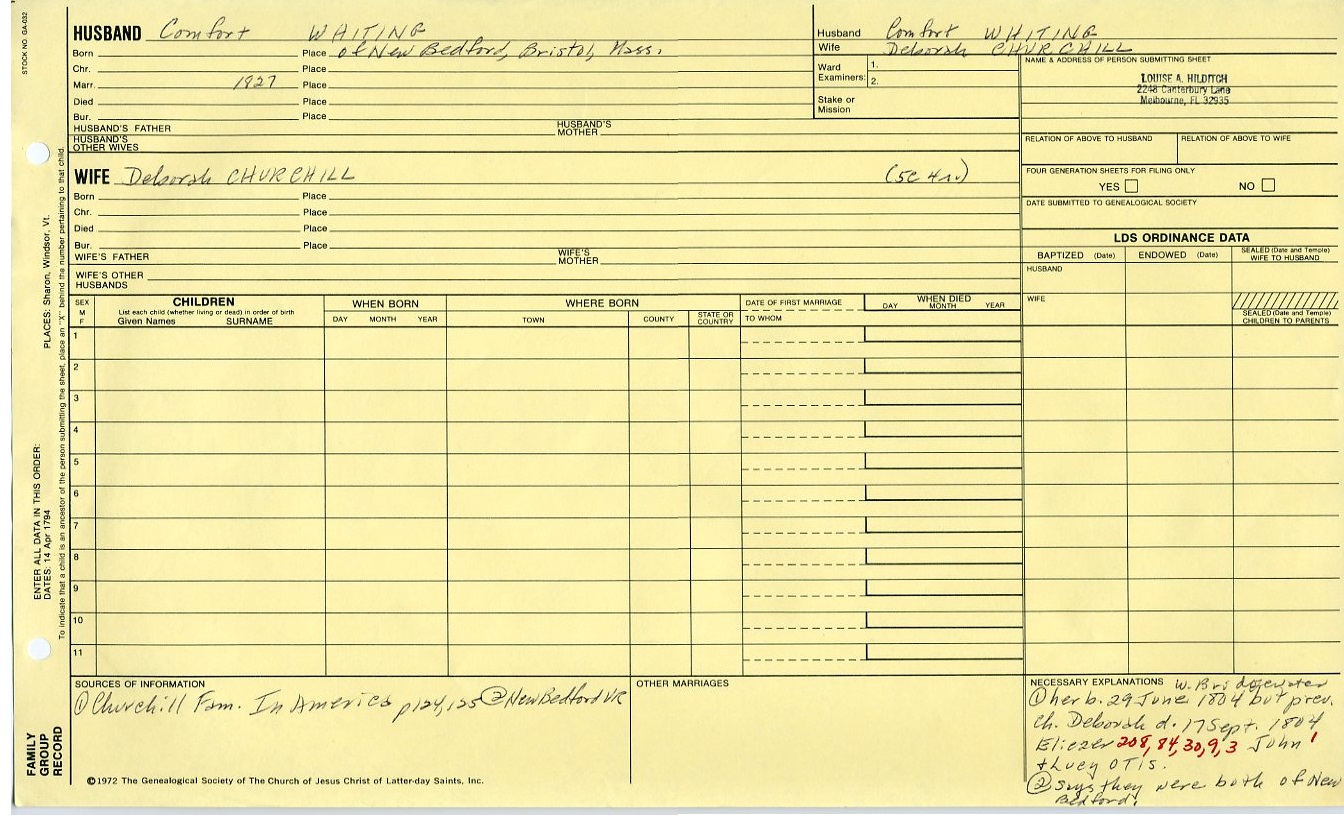 STOCK NO. GA-032
HUSBAND Comfort WHITING
Born Place of New Bedford, Bristol, Mass.
Chr. Place
Marr. 1827 Place
Died Place
Bur. Place
HUSBAND'S FATHER HUSBAND'S MOTHER
HUSBAND'S OTHER WIVES
Husband Comfort WHITING
Wife Deborah CHURCHILL
Ward Examiners: 1.
2.
Stake or Mission
NAME & ADDRESS OF PERSON SUBMITTING SHEET
LOUISE A. HILDITCH
2248 Canterbury Lane
Melbourne, FL 32935
RELATION OF ABOVE TO HUSBAND RELATION OF ABOVE TO WIFE
FOUR GENERATION SHEETS FOR FILING ONLY
YES NO
DATE SUBMITTED TO GENEALOGICAL SOCIETY
WIFE Deborah CHURCHILL (5C 4r.)
Born Place
Chr. Place
Died Place
Bur. Place
WIFE'S FATHER WIFE'S MOTHER
WIFE'S OTHER HUSBANDS
LDS ORDINANCE DATA
BAPTIZED (Date) ENDOWED (Date) SEALED (Date and Temple) WIFE TO HUSBAND
HUSBAND
WIFE
SEALED (Date and Temple) CHILDREN TO PARENTS
SEX M F
CHILDREN
List each child (whether living or dead) in order of birth
Given Names SURNAME
WHEN BORN
DAY MONTH YEAR
WHERE BORN
TOWN COUNTY STATE OR COUNTRY
DATE OF FIRST MARRIAGE
TO WHOM
WHEN DIED
DAY MONTH YEAR
1
2
3
4
5
6
7
8
9
10
11
SOURCES OF INFORMATION
① Churchill Fam. In America p124,125 ② New Bedford VR
OTHER MARRIAGES
NECESSARY EXPLANATIONS W. Bridgewater
① her b. 29 June 1804 but prev.
ch. Deborah d. 17 Sept. 1804
Eliezer 208, 84, 30, 9, 3 John 1
+ Lucy OTIS.
② says they were both of New
Bedford.
©1972 The Genealogical Society of The Church of Jesus Christ of Latter-day Saints, Inc.
FAMILY GROUP RECORD
ENTER ALL DATA IN THIS ORDER:
DATES: 14 Apr 1794
PLACES: Sharon, Windsor, Vt.
To indicate that a child is an ancestor of the person submitting the sheet, place an "X" behind the number pertaining to that child.